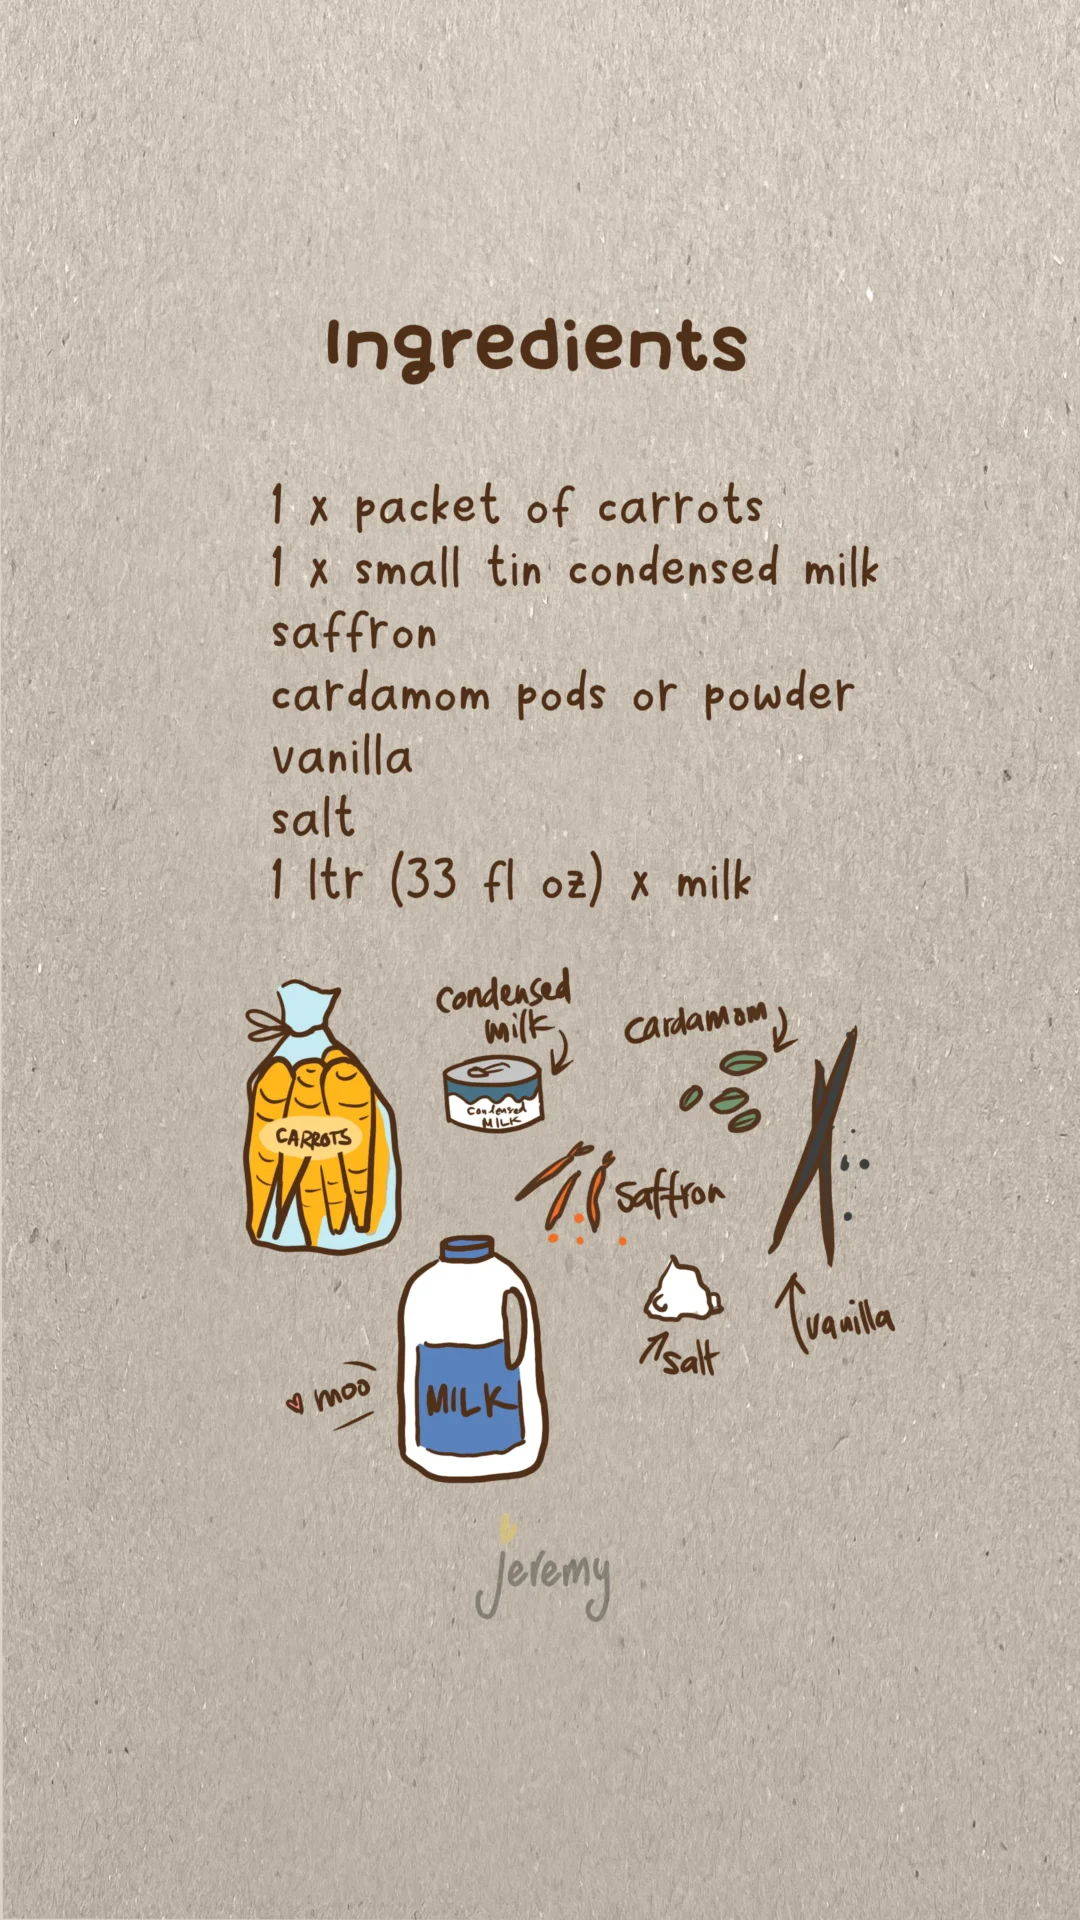 Ingredients
1 x packet of carrots
1 x small tin condensed milk
saffron
cardamom pods or powder
vanilla
salt
1 ltr (33 fl oz) x milk
condensed
milk
cardamom
CARROTS
Condensed
MILK
saffron
vanilla
salt
moo
MILK
jeremy